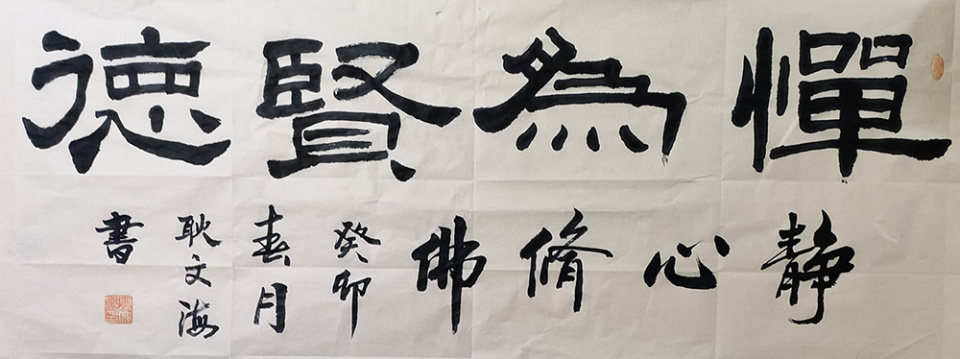 憚為賢德
静心脩佛
癸卯
春月
耿文海
書